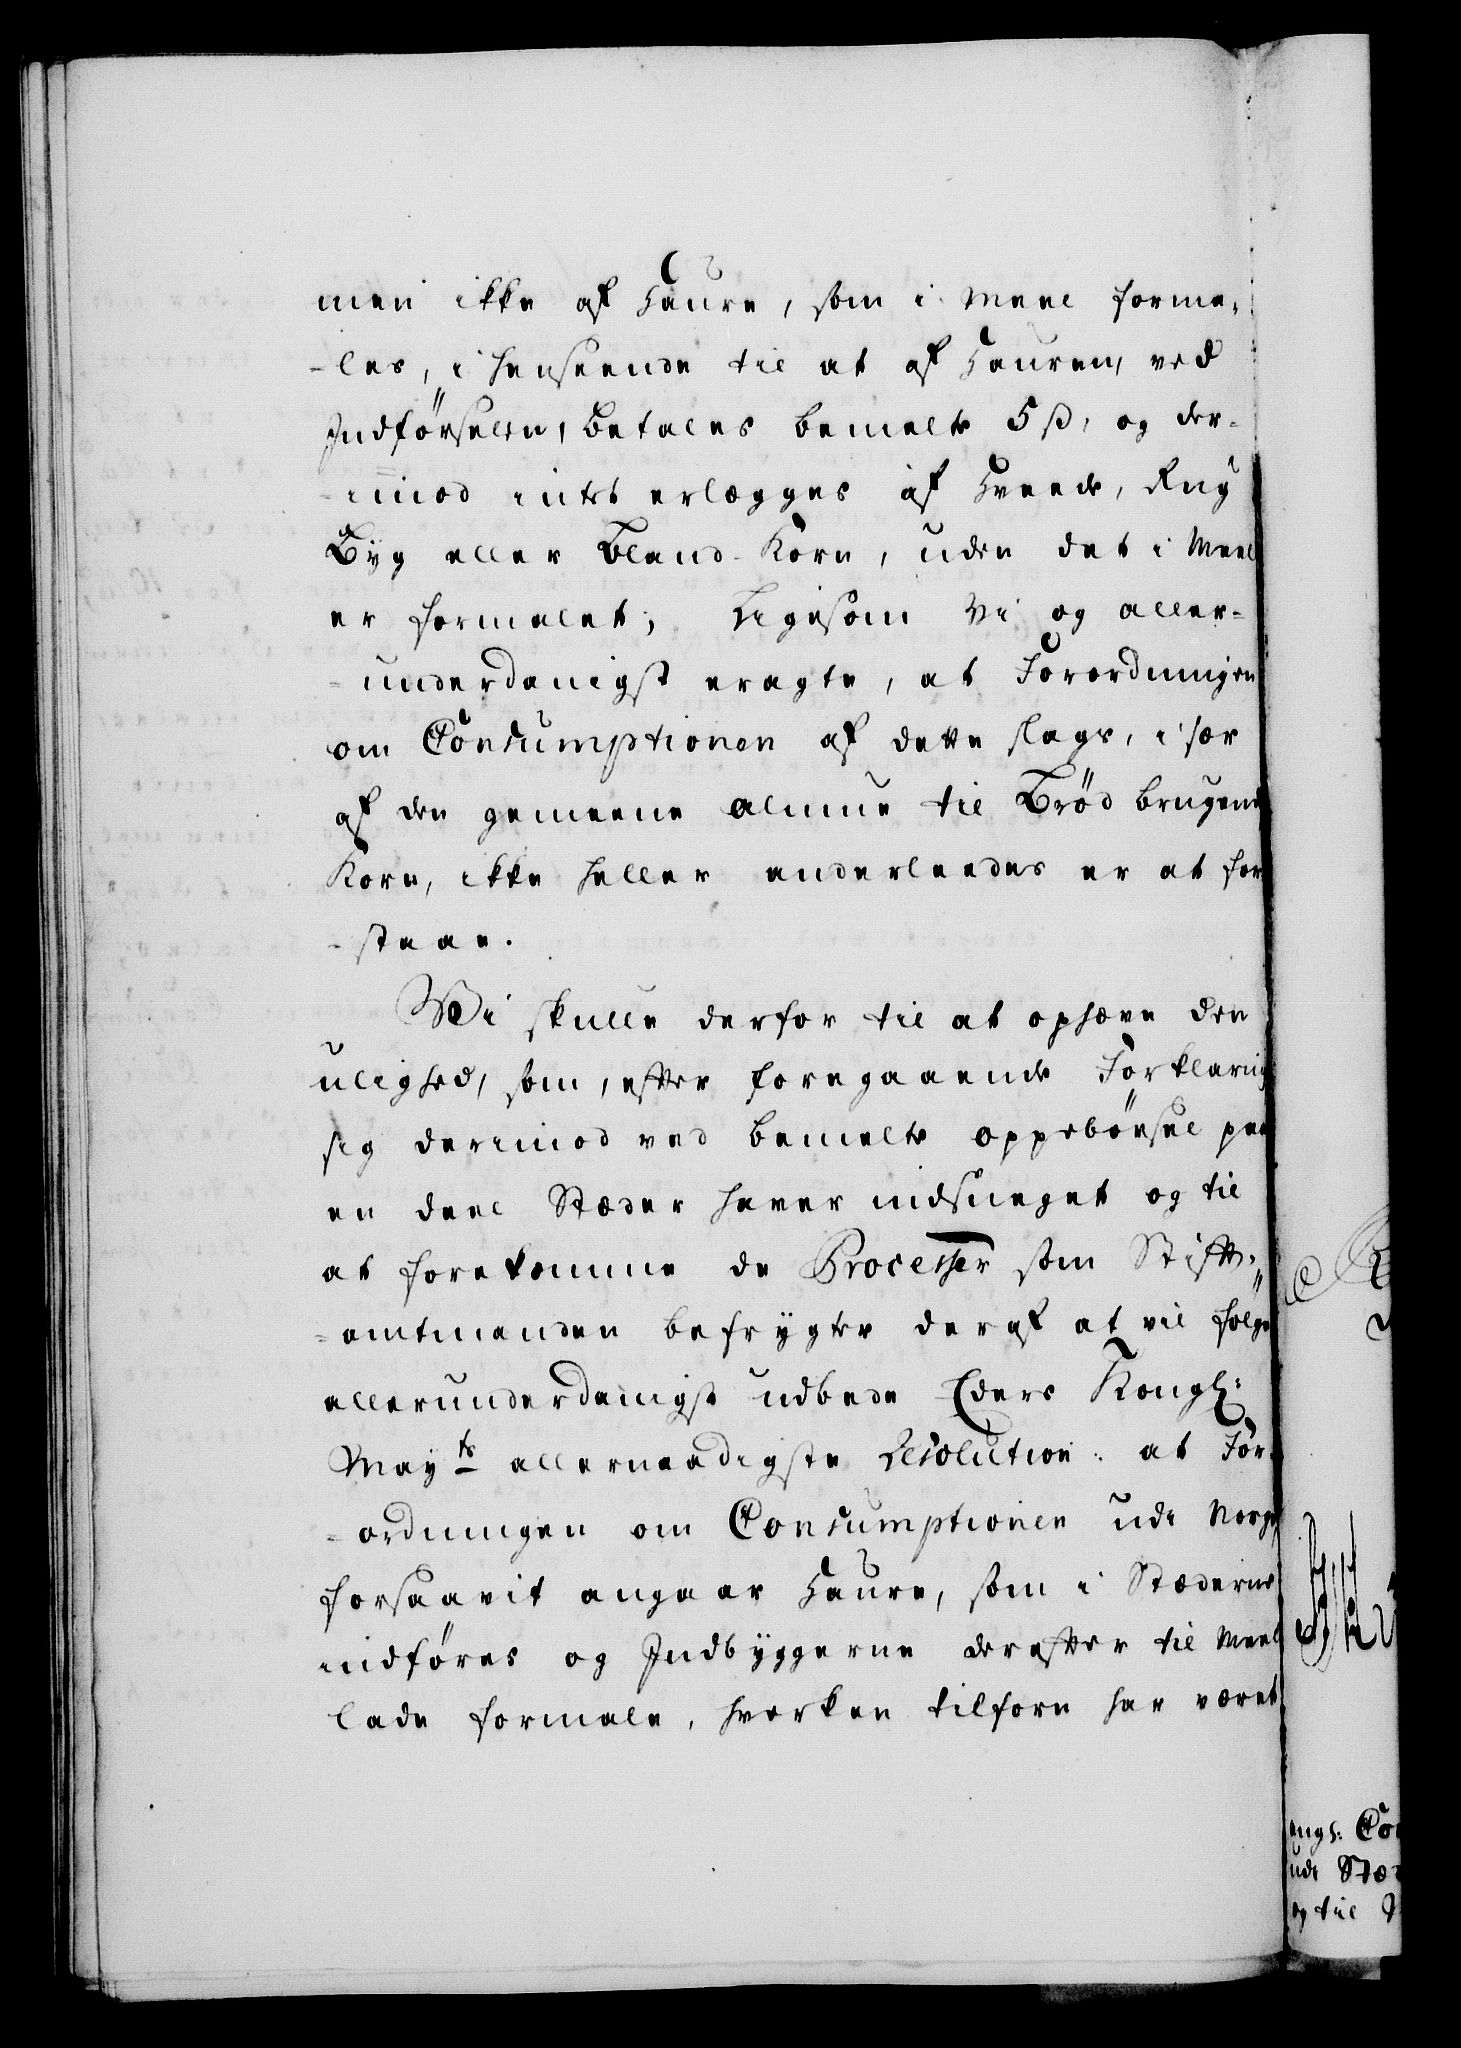 men ikke af Haure, som i Meel forma-
-les, i henseende til at af Hauren, ved
Indførselen, betales bemelte 5 ß, og der-
-imod intet erlægges af Hveede, Rug
Byg eller Bland-Korn, uden det i Meel
er formalet; Ligesom Vi og aller-
-underdanigst eragte, at Forordningen
om Consumptionen af dette slags, i sær
af den gemeene Almue til Brød brugend
Korn, ikke heller anderleedes er at for
-staae.
Wi skulle derfor til at ophæve den
ulighed, som, efter foregaaende Forklaring
sig derimod ved bemelte Oppebørsel paa
en deel Stæder haver indsneget og til
at forekomme de Processer som Stift-
-amtmanden befrygter deraf at vil følge
allerunderdanigst udbede Eders Kongl:
Mayts allernaadigste Resolution: at For-
-ordningen om Consumptionen udi Norge
forsaavit angaar Haure, som i Stæderne
indføres og Indbyggerne derefter til Meel
lade formale, hverken tilforn har været
angl: Co
udi Stæ
og til